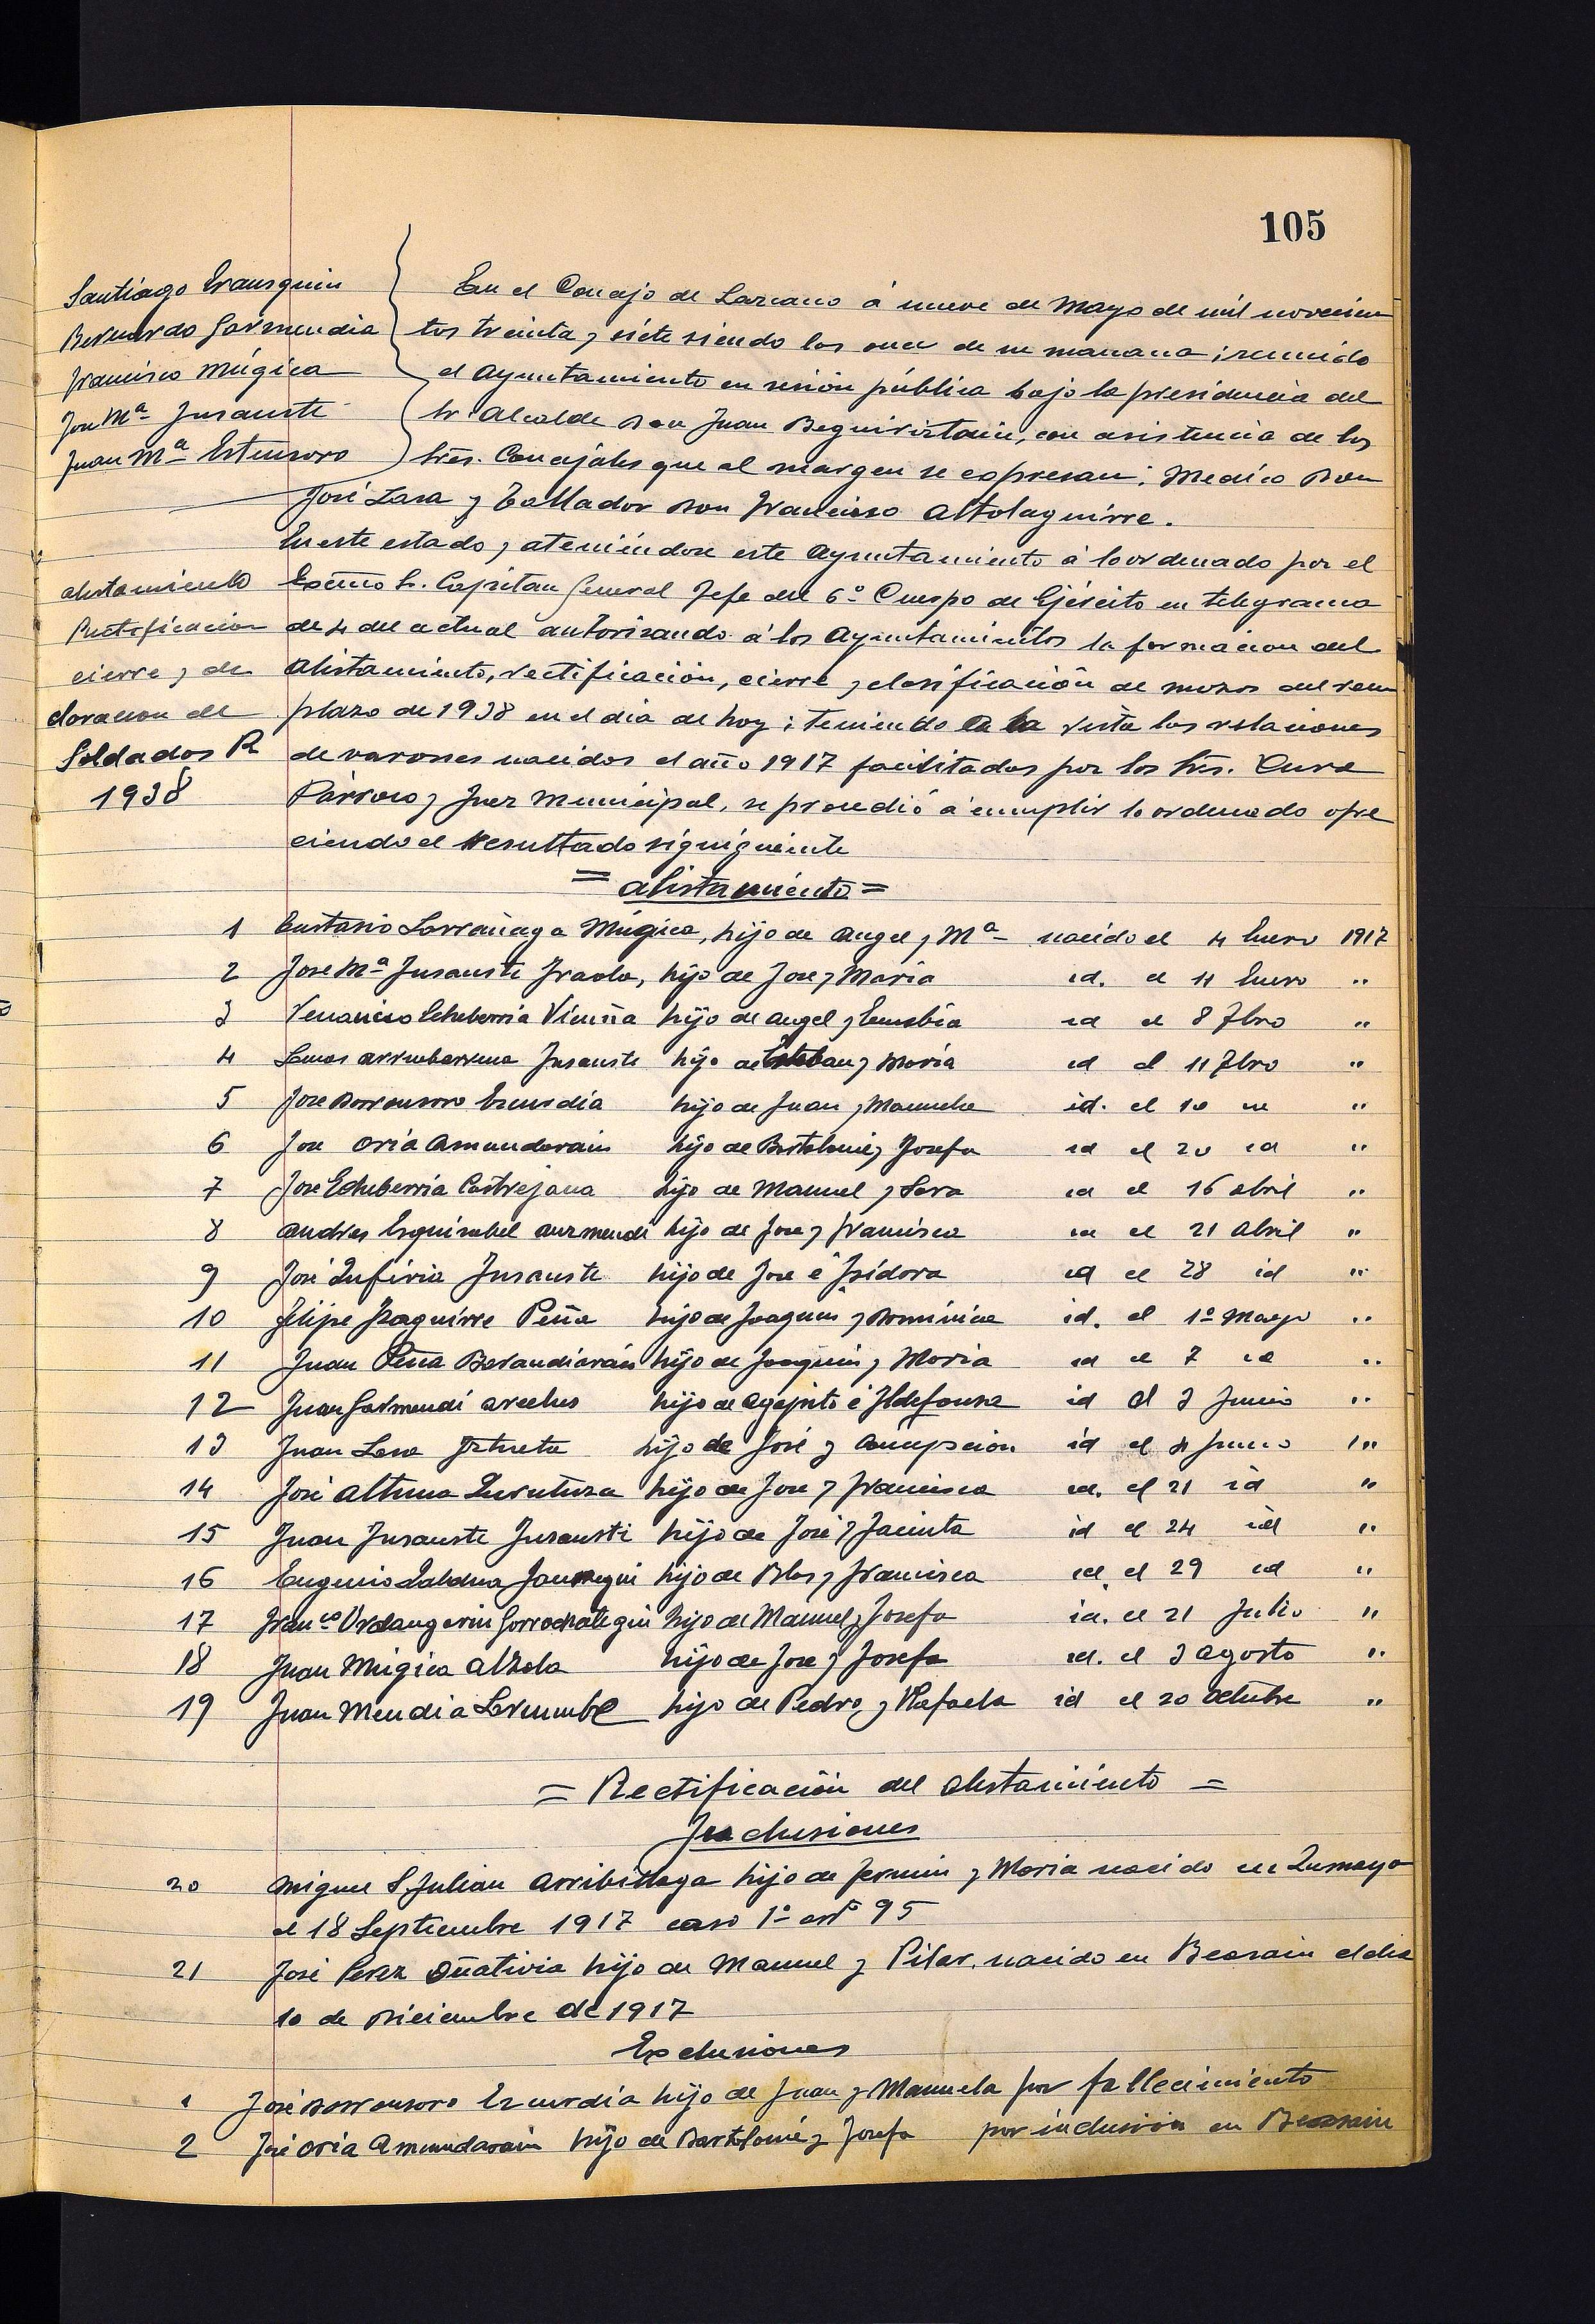 105
Santiago Irausquin
Bernardo Garmendia
Francisco Múgica
José Mª Insausti
Juan Mª Estensoro
En el Concejo de Lazcano á nueve de Mayo de mil novecien
tos treinta y siete siendo las once de su mañana; reunido
el Ayuntamiento en sesión pública bajo la presidencia del
Sr Alcalde Don Juan Beguiristain, con asistencia de los
Sres. Concejales que al margen se expresan; Medico Don
José Lasa y Tallador Don Francisco Altolaguirre.
En este estado, ateniéndose este Ayuntamiento á lo ordenado por el
Excmo Sr. Capitan General Jefe del 6º Cuerpo de Ejército en telegrama
de 4 del actual autorizando á los Ayuntamientos la formacion del
Alistamiento, rectificación, cierre y clasificación de mozos del reem
plazo de 1938 en el dia de hoy; teniendo a la vista las relaciones
de varones nacidos el año 1917 facilitadas por los Srs. Cura
Párroco y Juez Municipal, se procedió á cumplir lo ordenado ofre
ciendo el resultado siguiguiente
Alistamiento
Rectificacion
cierre y de
claracion de
Soldados R
1938
= Alistamiento =
1 Eustasio Larrañaga Múgica, hijo de Angel y Mª nacido el 4 Enero 1917
2 José Mª Insausti Iraola, hijo de José y Maria id. el 11 Enero "
3 Venancio Echeberria Vicuña hijo de Angel y Eusebia id el 8 Fbro "
4 Lucas Arrueberrena Insausti hijo de Esteban y Maria id el 11 Fbro "
5 Jose Dorronsoro Ezcurdia hijo de Juan y Manuela id. el 10 "
6 José Oria Amundarain hijo de Bartolomé y Josefa id el 20 id "
7 José Echeberria Castrejana hijo de Manuel y Sara id el 16 Abril "
8 Andres Esquisabel Aurmendi hijo de José y Francisca id el 21 Abril "
9 José Zufiria Insausti hijo de José é Isidora id el 28 id "
10 Felipe Izaguirre Peña hijo de Joaquin y Dominica id. el 1º Mayo "
11 Juan Peña Barandiarán hijo de Joaquin y Maria id el 7 id "
12 Juan Garmendi Arcelus hijo de Agapito é Ildefonsa id el 3 Junio "
13 Juan Lasa Iztueta hijo de José y Concepcion id el 4 Junio 1"
14 José Altuna Zurutuza hijo de José y Francisca id. el 21 id "
15 Juan Insausti Insausti hijo de José y Jacinta id el 24 id "
16 Eugenio Zaldua Jauregui hijo de Blas y Francisca id. el 29 id "
17 Franco Urdangarin Gorrochategui hijo de Manuel y Josefa id. el 21 Julio "
18 Juan Múgica Alzola hijo de José y Josefa id. el 3 Agosto "
19 Juan Mendia Larrumbe hijo de Pedro y Rafaela id el 20 Octubre "
= Rectificación del Alistamiento =
Inclusiones
20 Miguel S. Julian Arribillaga hijo de Fermin y Maria nacido en Zumaya
el 18 Septiembre 1917 caso 1º artº 95
21 José Perez Oñativia hijo de Manuel y Pilar, nacido en Beasain el dia
10 de Diciembre de 1917
Exclusiones
1 José Dorronsoro Ezcurdia hijo de Juan y Manuela por fallecimiento
2 José Oria Amundarain hijo de Bartolomé y Josefa por inclusión en Beasain